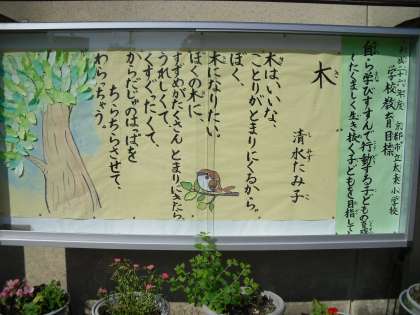 学校教育目標 京都市立太秦小学校
自ら学びすすんで行動する子どもを
たくましく生き抜く子どもを目指して
木
き
清水たみ子
しみず
木はいいな、
ことりがとまりにくるから。
ぼく、
木になりたい。
ぼくの木に、
すずめがたくさんとまりにきたら、
うれしくて、
くすぐったくて、
からだじゅうのはっぱを
ちらちらさせて、
わらっちゃう。